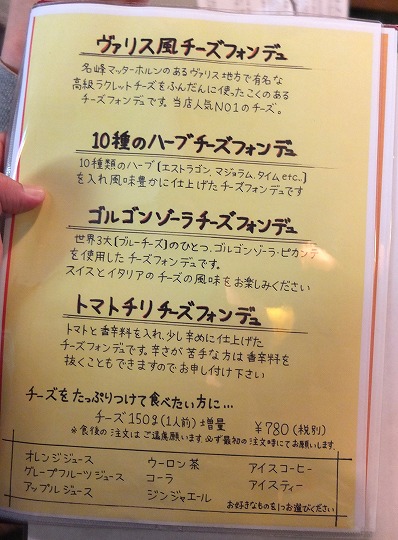 ヴァリス風チーズフォンデュ
名峰マッターホルンのあるヴァリス地方で有名な
高級ラクレットチーズをふんだんに使ったこくのある
チーズフォンデュです。当店人気NO1のチーズ。
10種のハーブチーズフォンデュ
10種類のハーブ(エストラゴン、マジョラム、タイム、etc..)
を入れ風味豊かに仕上げたチーズフォンデュです
ゴルゴンゾーラチーズフォンデュ
世界3大(ブルーチーズ)のひとつ、ゴルゴンゾーラ・ピカンテ
を使用したチーズフォンデュです。
スイスとイタリアのチーズの風味をお楽しみください
トマトチリチーズフォンデュ
トマトと香辛料を入れ、少し辛めに仕上げた
チーズフォンデュです。辛さが苦手な方は香辛料を
抜くこともできますのでお申し付け下さい
チーズをたっぷりつけて食べたい方に…
チーズ150g(1人前)増量 ¥780(税別)
※食後のご注文はご遠慮願います。必ず最初の注文時にてお願いします。
オレンジジュース ウーロン茶 アイスコーヒー
グレープフルーツジュース コーラ アイスティー
アップルジュース ジンジャエール
お好きなものを1つお選びください